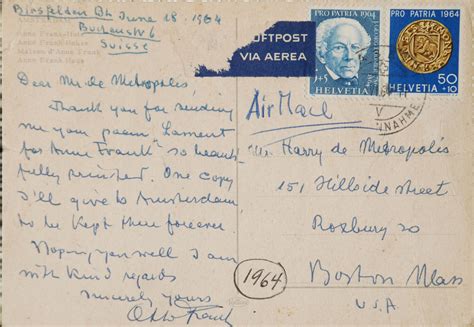 Birsfelden June 18. 1964
Buchenstr 6
Suisse
Dear Mr. de Metropolis,
Thank you for sending
me your poem "Lament
for Anne Frank" so beauti-
fully printed. One copy
I'll give to Amsterdam
to be kept there forever.
Hoping you well I am
with kind regards
Sincerely yours
Otto Frank
LUFTPOST
VIA AEREA
PRO PATRIA 1964
5+5 HELVETIA
PRO PATRIA 1964
50
+10
HELVETIA
Air Mail
Mr Harry de Metropolis
151 Hillside street
Roxbury 20
Boston Mass
U.S.A
1964